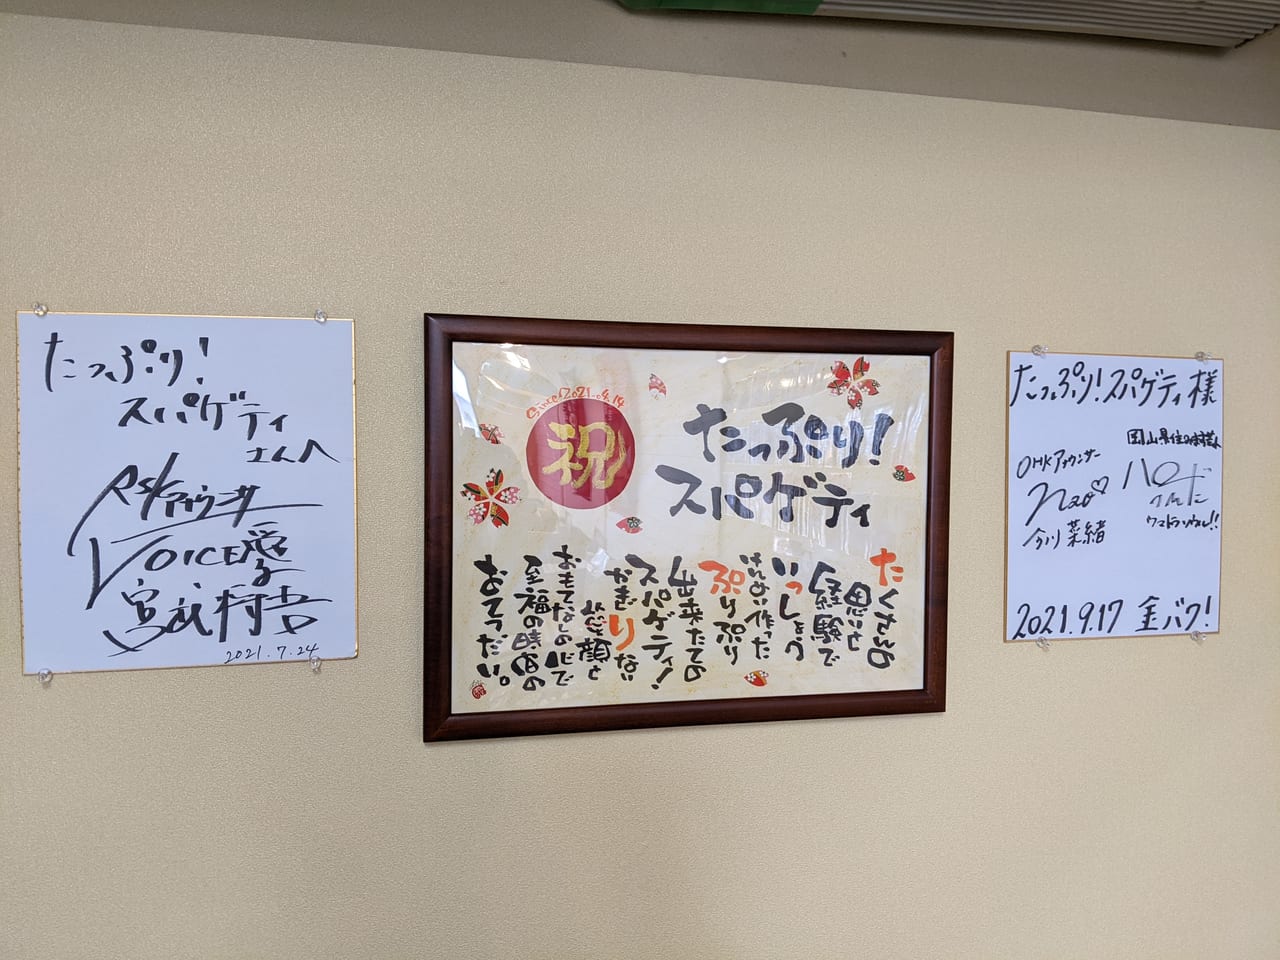 たっぷり!
スパゲティ
さんへ
RSKアナウンサー
VOICE愛
宮武将吾
2021.7.24
Since2021.4.14
祝
たっぷり!
スパゲティ
たくさんの
思いと
経験で
いっしょう
けんめい作った
ぷりぷり
出来たての
スパゲティ!
かぎりない
笑顔と
おもてなしの心で
至福の時間の
おてつだい。
たっぷり!スパゲティ様
岡山県住みます芸人
OHKアナウンサー
nao♡
ハロー
今川菜緒
2021.9.17 金バク!